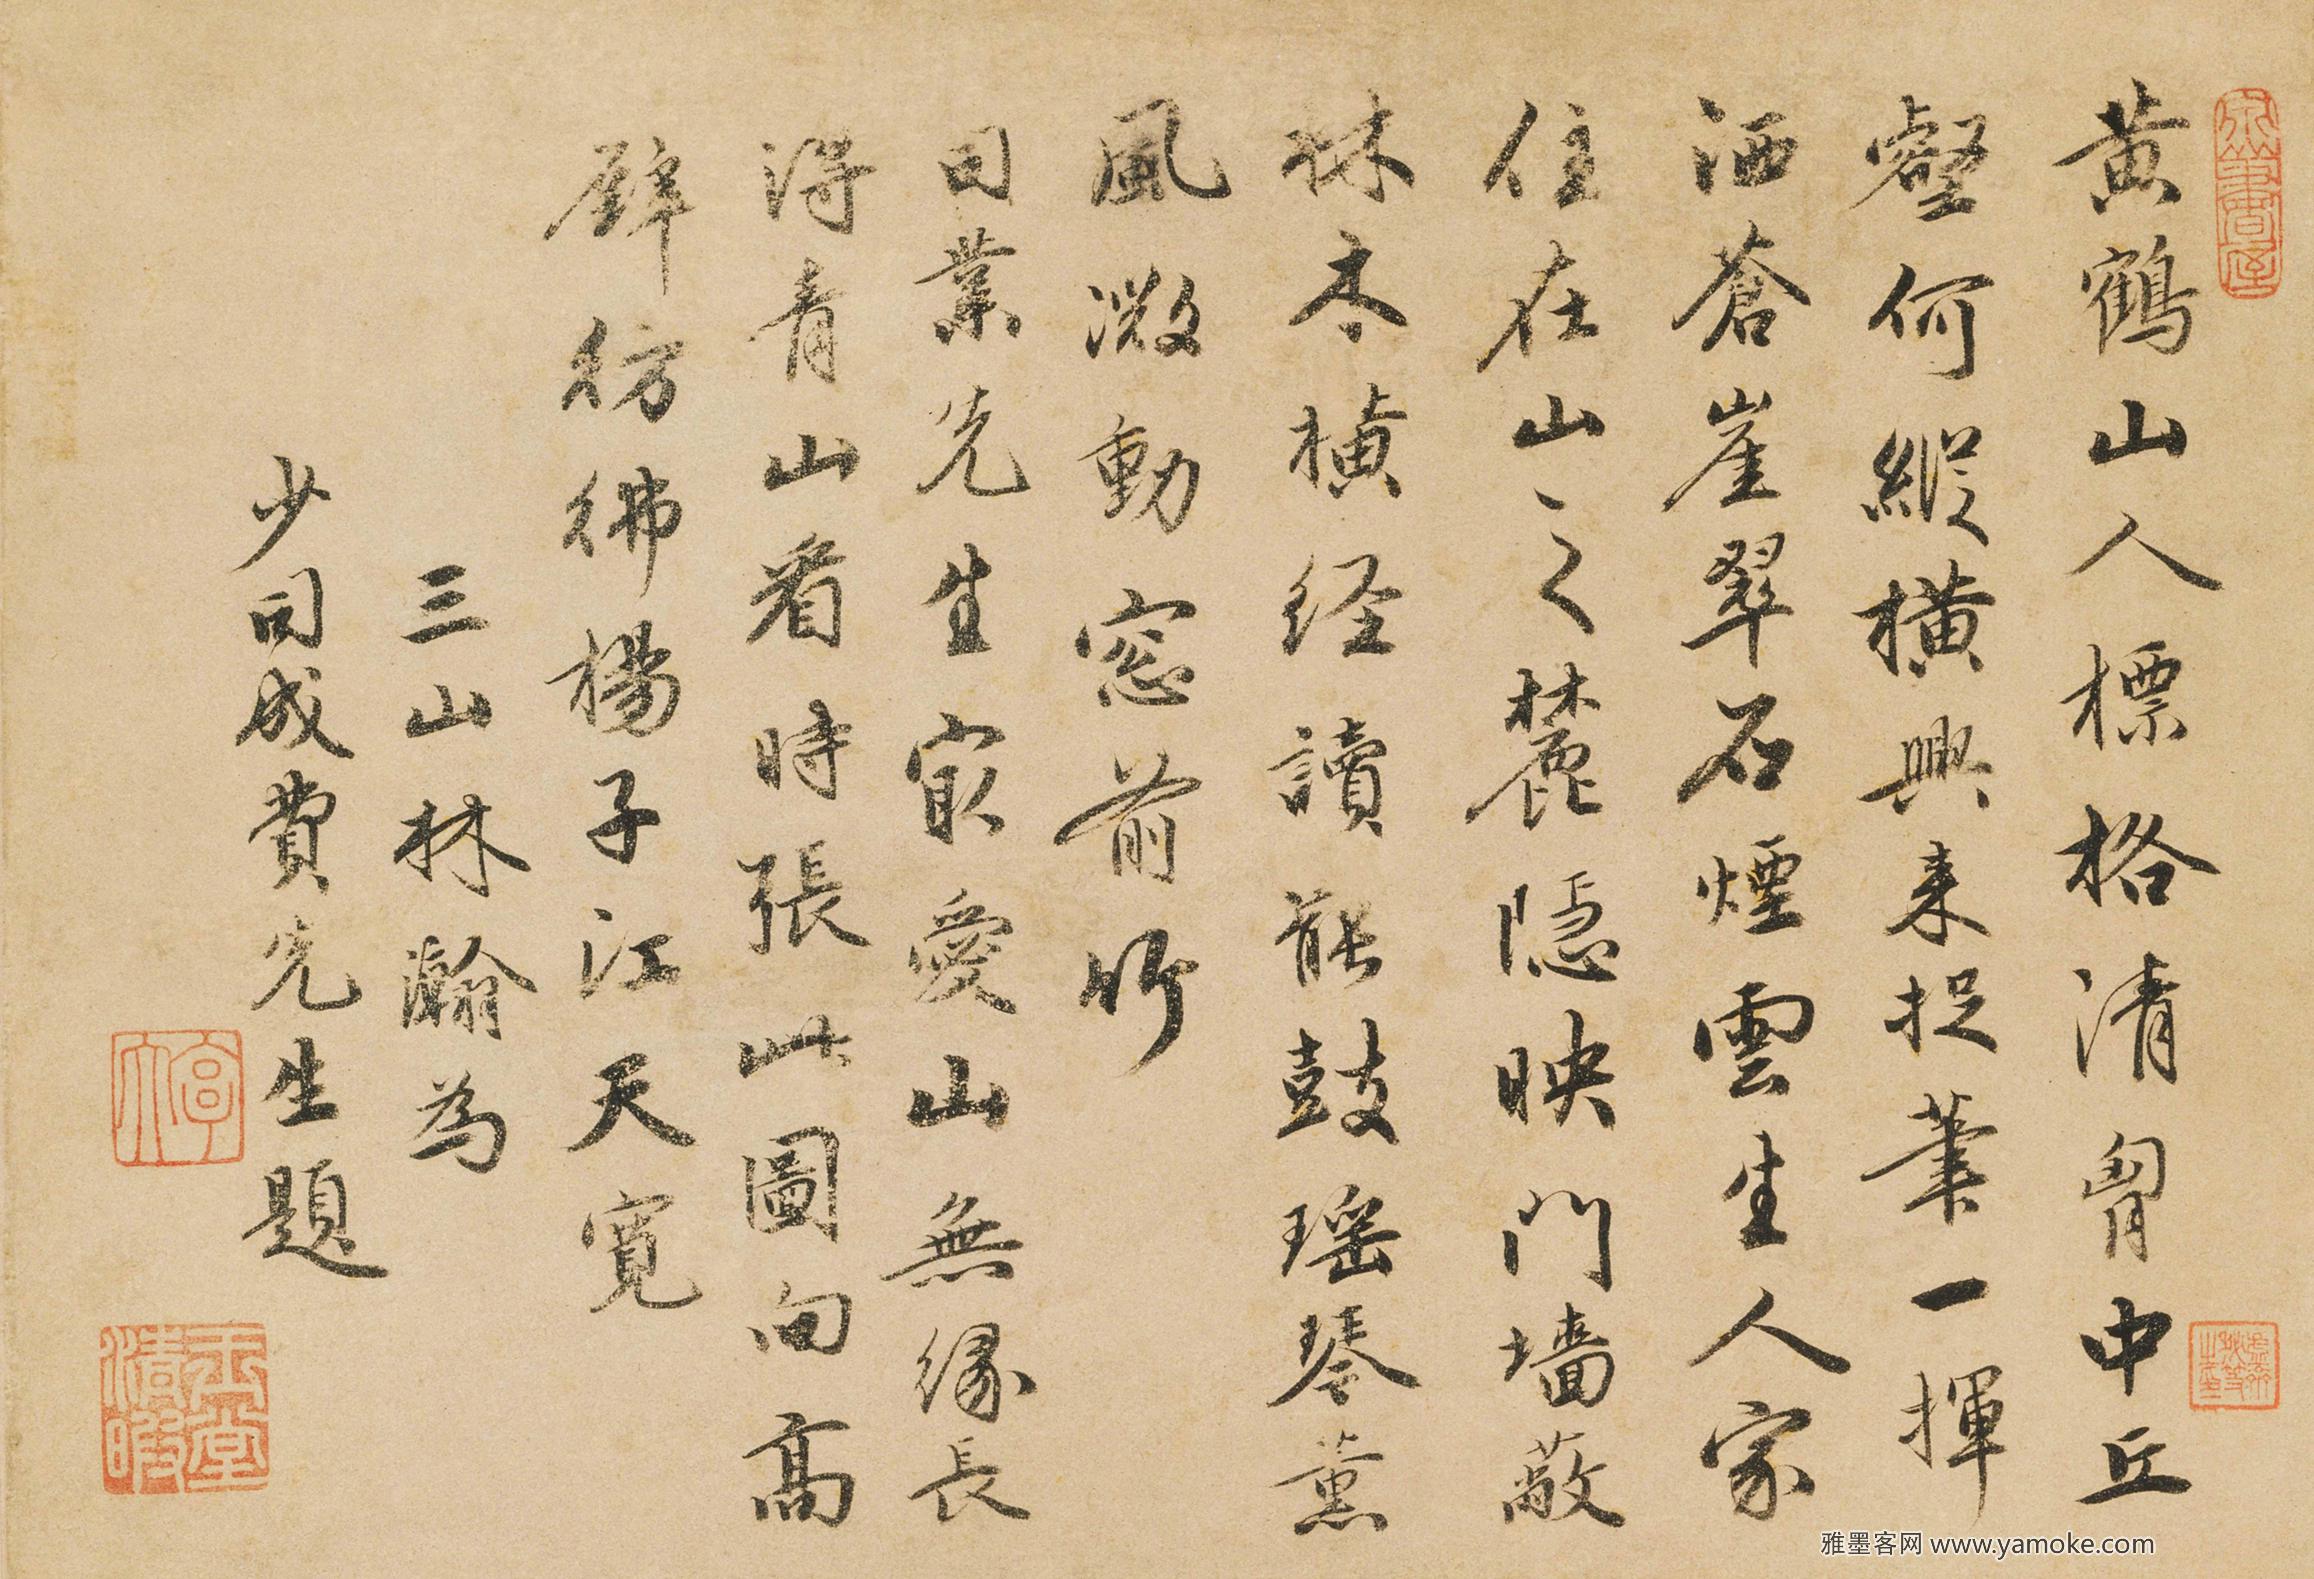 黄鶴山人標格清胷中丘
壑何縱橫興来捉筆一揮
洒蒼崖翠石煙雲生人家
住在山之麓隱映門墙蔽
林木橫经讀罷鼓瑶琴薰
風微動窓前竹
司業先生㝡愛山無緣長
得青山看時張此圖向高
壁彷彿楊子江天寬
三山林瀚為
少司成費先生題
亨大
玉堂清暇
雅墨客网 www.yamoke.com